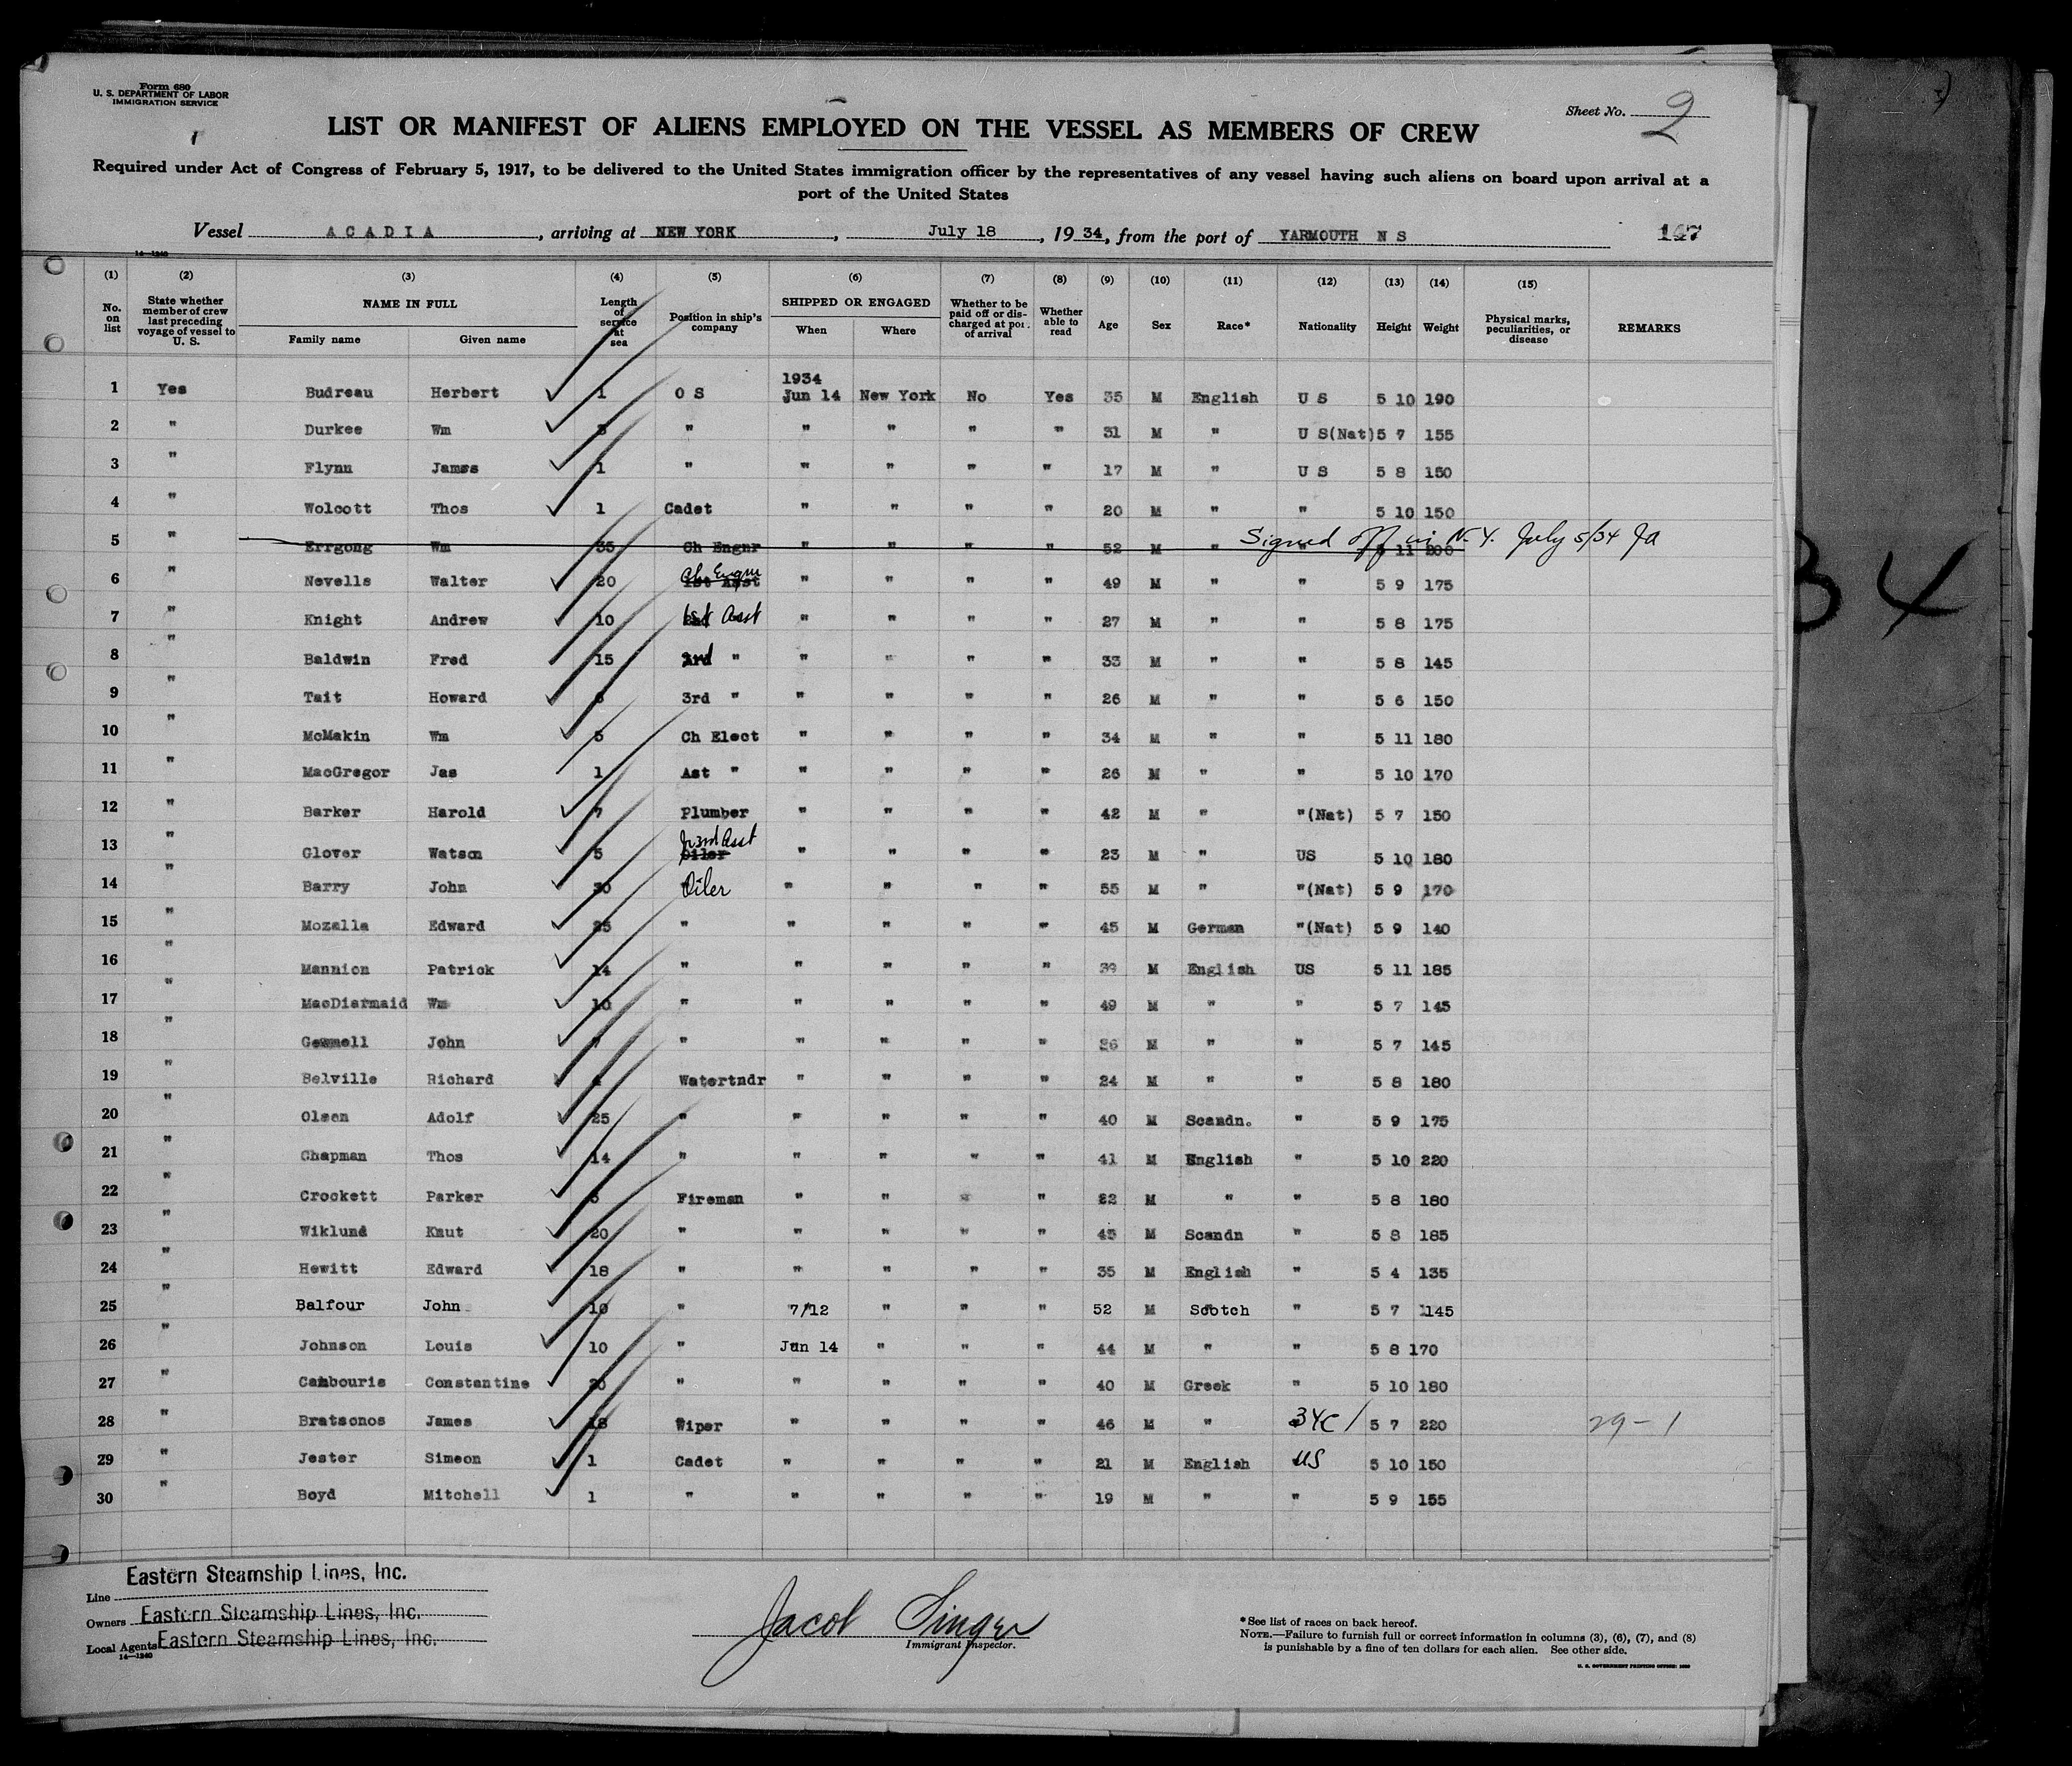 Form 680
U. S. DEPARTMENT OF LABOR
IMMIGRATION SERVICE
Sheet No. 2
LIST OR MANIFEST OF ALIENS EMPLOYED ON THE VESSEL AS MEMBERS OF CREW
Required under Act of Congress of February 5, 1917, to be delivered to the United States immigration officer by the representatives of any vessel having such aliens on board upon arrival at a
port of the United States
Vessel ACADIA, arriving at NEW YORK, July 18, 1934, from the port of YARMOUTH N S 147
14—1240
(1) (2) (3) (4) (5) (6) (7) (8) (9) (10) (11) (12) (13) (14) (15)
No. on list State whether member of crew last preceding voyage of vessel to U. S. NAME IN FULL Family name Given name Length of service at sea Position in ship's company SHIPPED OR ENGAGED When Where Whether to be paid off or discharged at port of arrival Whether able to read Age Sex Race* Nationality Height Weight Physical marks, peculiarities, or disease REMARKS
1 Yes Budreau Herbert 1 O S 1934 Jun 14 New York No Yes 35 M English U S 5 10 190
2 " Durkee Wm 3 " " " " " 31 M " U S(Nat) 5 7 155
3 " Flynn James 1 " " " " " 17 M " U S 5 8 150
4 " Wolcott Thos 1 Cadet " " " " 20 M " " 5 10 150
5 " Errgong Wm 35 Ch Engnr " " " " 52 M " " 5 11 200 Signed off in N.Y. July 5/34 JA
6 " Nevells Walter 20 1st Asst Ch Engnr " " " " 49 M " " 5 9 175
7 " Knight Andrew 10 1st Asst " " " " 27 M " " 5 8 175
8 " Baldwin Fred 15 " " " " " 33 M " " 5 8 145
9 " Tait Howard 6 3rd " " " " " 26 M " " 5 6 150
10 " McMakin Wm 5 Ch Elect " " " " 34 M " " 5 11 180
11 " MacGregor Jas 1 Ast " " " " " 26 M " " 5 10 170
12 " Barker Harold 7 Plumber " " " " 42 M " "(Nat) 5 7 150
13 " Glover Watson 5 Oiler Jr 3rd Asst " " " " 23 M " US 5 10 180
14 " Barry John 30 Oiler " " " " 55 M " "(Nat) 5 9 170
15 " Mozella Edward 25 " " " " " 45 M German "(Nat) 5 9 140
16 " Mannion Patrick 14 " " " " " 39 M English US 5 11 185
17 " MacDiarmaid Wm 10 " " " " " 49 M " " 5 7 145
18 " Gemmell John 7 " " " " " 36 M " " 5 7 145
19 " Belville Richard Watertndr " " " " 24 M " " 5 8 180
20 " Olsen Adolf 25 " " " " " 40 M Scandn. " 5 9 175
21 " Chapman Thos 14 " " " " " 41 M English " 5 10 220
22 " Crockett Parker Fireman " " " " 22 M " " 5 8 180
23 " Wiklund Knut 20 " " " " " 45 M Scandn " 5 8 185
24 " Hewitt Edward 18 " " " " " 35 M English " 5 4 135
25 " Balfour John 10 " 7/12 " " " 52 M Scotch " 5 7 145
26 " Johnson Louis 10 " Jun 14 " " " 44 M " " 5 8 170
27 " Cambouris Constantine 20 " " " " " 40 M Greek " 5 10 180
28 " Bratsonos James 18 Wiper " " " " 46 M " 34C / 5 7 220 29-1
29 " Jester Simeon 1 Cadet " " " " 21 M English US 5 10 150
30 " Boyd Mitchell 1 " " " " " 19 M " " 5 9 155
Line Eastern Steamship Lines, Inc.
Owners Eastern Steamship Lines, Inc.
Local Agents Eastern Steamship Lines, Inc.
14—1240
Jacob Singer
Immigrant Inspector.
*See list of races on back hereof.
NOTE.—Failure to furnish full or correct information in columns (3), (6), (7), and (8)
is punishable by a fine of ten dollars for each alien. See other side.
U. S. GOVERNMENT PRINTING OFFICE: 1930
34